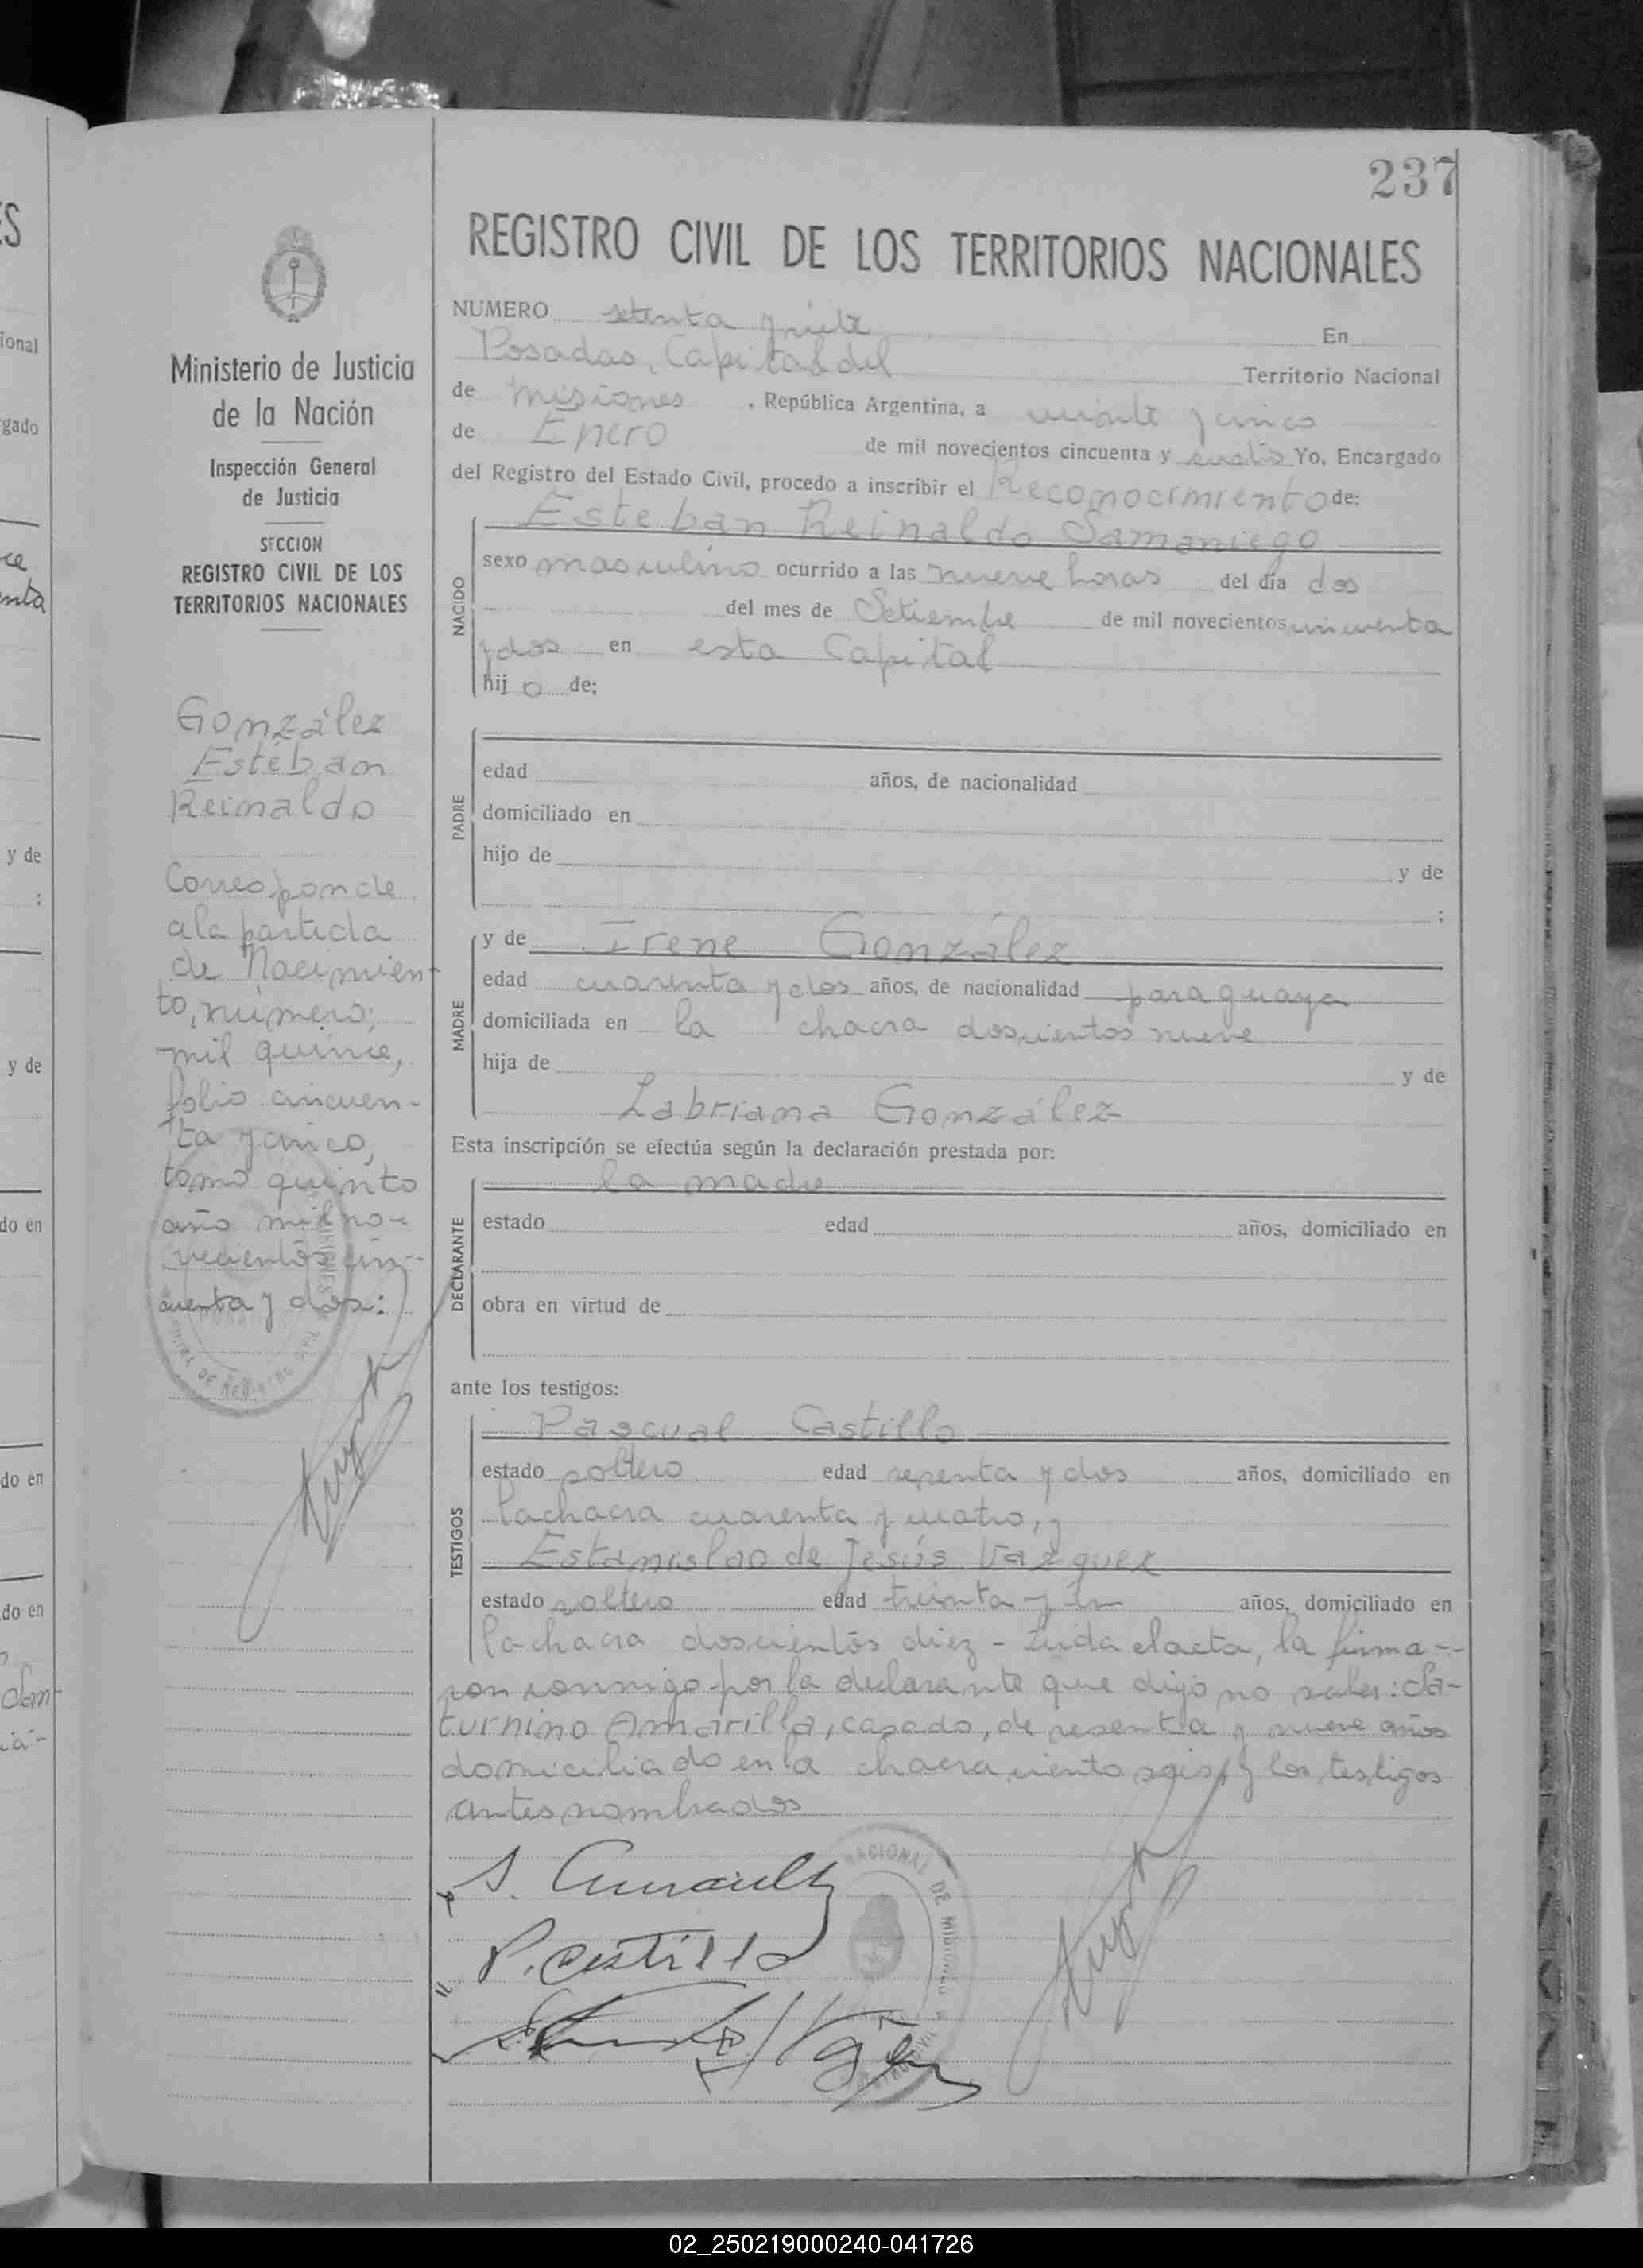 237
REGISTRO CIVIL DE LOS TERRITORIOS NACIONALES
NUMERO setenta y siete En
Posadas, Capital del Territorio Nacional
de Misiones, República Argentina, a veinte y cinco
de Enero de mil novecientos cincuenta y cuatro Yo, Encargado
del Registro del Estado Civil, procedo a inscribir el Reconocimiento de:
NACIDO
Esteban Reinaldo Samaniego
sexo masculino ocurrido a las nueve horas del día dos
del mes de Setiembre de mil novecientos cincuenta
y dos en esta Capital
hij o de;
PADRE
edad años, de nacionalidad
domiciliado en
hijo de y de
;
MADRE
y de Irene González
edad cuarenta y dos años, de nacionalidad paraguaya
domiciliada en la chacra doscientos nueve
hija de y de
Labriana González
Esta inscripción se efectúa según la declaración prestada por:
DECLARANTE
la madre
estado edad años, domiciliado en
obra en virtud de
ante los testigos:
TESTIGOS
Pascual Castillo
estado soltero edad sesenta y dos años, domiciliado en
la chacra cuarenta y cuatro, y
Estanislao de Jesús Vazquez
estado soltero edad treinta y un años, domiciliado en
la chacra doscientos diez - Leida el acta, la firma--
ron conmigo por la declarante que dijo no saber: Sa-
turnino Amarilla, casado, de sesenta y nueve años
domiciliado en la chacra ciento seis, y los testigos
antes nombrados
S. Amarilla
P. Castillo
Ministerio de Justicia
de la Nación
Inspección General
de Justicia
SECCION
REGISTRO CIVIL DE LOS
TERRITORIOS NACIONALES
González
Estéban
Reinaldo
Corresponde
a la partida
de Nacimien-
to, número;
mil quince,
folio cincuen-
ta y cinco,
tomo quinto
año mil no-
vecientos cin--
cuenta y dos:
ional
gado
y de
;
y de
do en
do en
do en
02_250219000240-041726